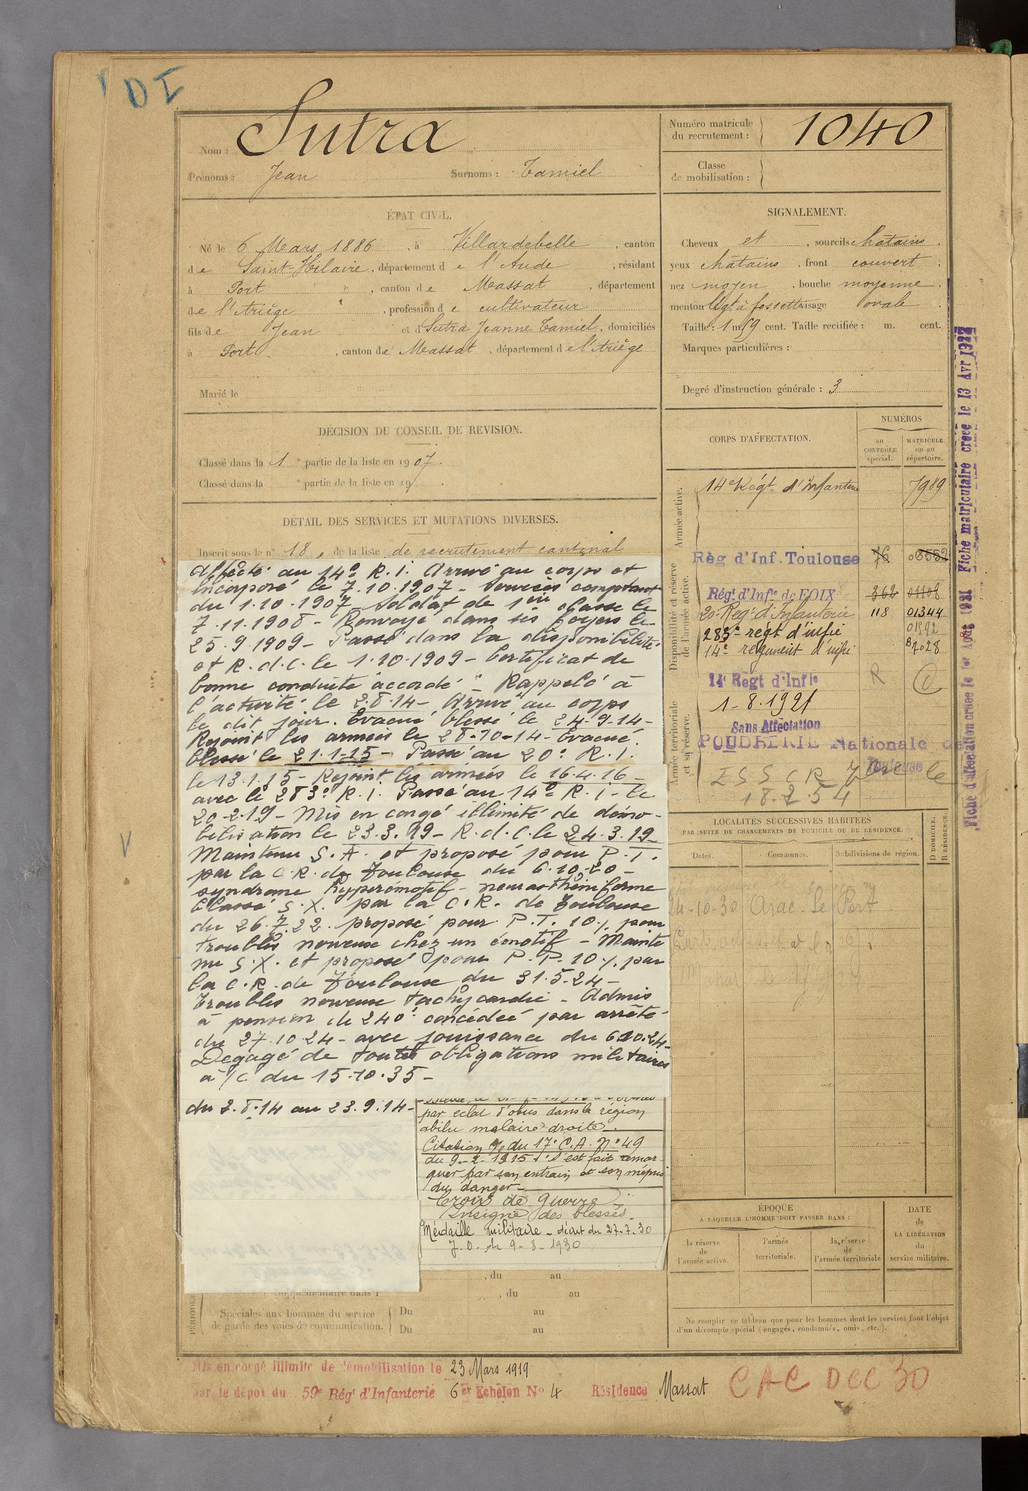 DI
Nom : Sutra
Prénoms : Jean Surnoms : Tamiel
Numéro matricule du recrutement : 1040
Classe de mobilisation :
ÉTAT CIVIL.
Né le 6 Mars 1886, à Villardebelle, canton
de Saint-Hilaire, département de l'Aude, résidant
à Port, canton de Massat, département
de l'Ariège, profession de cultivateur
fils de Jean et d Sutra Jeanne Tamiel, domiciliés
à Port, canton de Massat, département de l'Ariège
Marié le
SIGNALEMENT.
Cheveux et, sourcils châtains,
yeux châtains, front couvert,
nez moyen, bouche moyenne,
menton à fossette visage ovale
Taille : 1 m 59 cent. Taille rectifiée : m. cent.
Marques particulières :
Degré d'instruction générale : 3
DÉCISION DU CONSEIL DE REVISION.
Classé dans la 1e partie de la liste en 1907.
Classé dans la e partie de la liste en 19 .
DÉTAIL DES SERVICES ET MUTATIONS DIVERSES.
Inscrit sous le n° 18, de la liste de recrutement cantonal
Affecté au 14e R.I. Arrivé au corps et
incorporé le 7.10.1907 - Services comptant
du 1.10.1907 Soldat de 1ère classe le
7.11.1908 - Renvoyé dans ses foyers le
25.9.1909 - Passé dans la disponibilité
et R.d.C. le 1.10.1909 - Certificat de
bonne conduite "accordé" - Rappelé à
l'activité le 2.8.14 - Arrivé au corps
le dit jour. Évacué blessé le 24.9.14 -
Rejoint les armées le 28-10-14 - Évacué
blessé le 21.1.15 - Passé au 20e R.I.
le 13.1.15 - Rejoint les armées le 16.4.16 -
avec le 283e R.I. Passé au 14e R.I. - le
20-2-19 - Mis en congé illimité de démo-
bilisation le 23.3.19 - R.d.C. le 24.3.19 -
Maintenu S.A. et proposé pour P.T.
par la C.R. de Toulouse du 6.10.20 -
syndrome hyperémotif - neurasthéniforme
Classé S.X. par la C.R. de Toulouse
du 26.7.22 proposé pour P.T. 10% pour
troubles nerveux chez un émotif - Mainte
nu S.X. et proposé pour P.P. 10% par
la C.R. de Toulouse du 31.5.24 -
Troubles nerveux tachycardie - Admis
à pension de 240f concédée par arrêté
du 27.10.24 - avec jouissance du 6.10.24 -
Dégagé de toutes obligations militaires
à/c du 15.10.35 -
du 2.8.14 au 23.9.14 -
par éclat d'obus dans la région
malaire droite -
Citation % du 17e C.A. N° 49
du 9-2-1915 : S'est fait remar
quer par son entrain et son mépris
du danger -
Croix de guerre
Insigne des blessés.
Médaille Militaire - décret du 27-7-30
J.O. du 9-8-1930
, du au
, du au
Spéciales aux hommes du service
de garde des voies de communication.
Du au
Du au
CORPS D'AFFECTATION.
NUMÉROS
AU CONTRÔLE spécial.
MATRICULE ou au répertoire.
Armée active.
14e Régt d'Infanterie 7989
Disponibilité et réserve de l'armée active.
Rég d'Inf. Toulouse 76
Régt d'Infie de FOIX
20e Régt d'Infanterie 118 01344
283e régt d'infie 01592
14e régiment d'infie
14e Régt d'Infie R
1-8-1921
Armée territoriale et sa réserve.
Sans Affectation
POUDRERIE Nationale de
Toulouse
18 2 54
LOCALITÉS SUCCESSIVES HABITÉES
PAR SUITE DE CHANGEMENTS DE DOMICILE OU DE RÉSIDENCE.
Dates. Communes. Subdivisions de région. D DOMICILE. R RÉSIDENCE.
24-10-30 Arac Le Port
ÉPOQUE
À LAQUELLE L'HOMME DOIT PASSER DANS :
la réserve de l'armée active.
l'armée territoriale.
la réserve de l'armée territoriale
DATE de LA LIBÉRATION du service militaire.
Ne remplir ce tableau que pour les hommes dont les services font l'objet
d'un décompte spécial (engagés, condamnés, omis, etc.).
Fiche d'affectation créée le 1er Août 1921
Fiche matriculaire créée le 13 Avr 1927
Mis en congé illimité de démobilisation le 23 Mars 1919
par le dépôt du 59e Rég' d'Infanterie 6er Echelon N° 4 Résidence Massat
CAC DEC 30